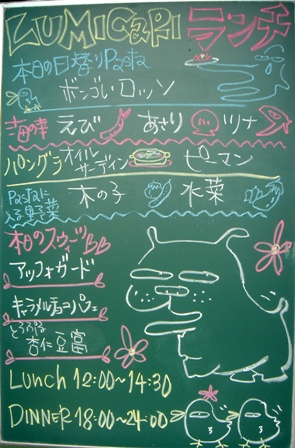 ZUMICAPI ランチ
本日の日替りPasta
ボンゴレ・ロッソ
海の幸 えび あさり ツナ
パングラ オイルサーディン ピーマン
Pastaに入る野菜 木の子 水菜
本日のスウィーツ
アッフォガード
キャラメルチョコパフェ
とろける
杏仁豆富
Lunch 12:00~14:30
DINNER 18:00~24:00